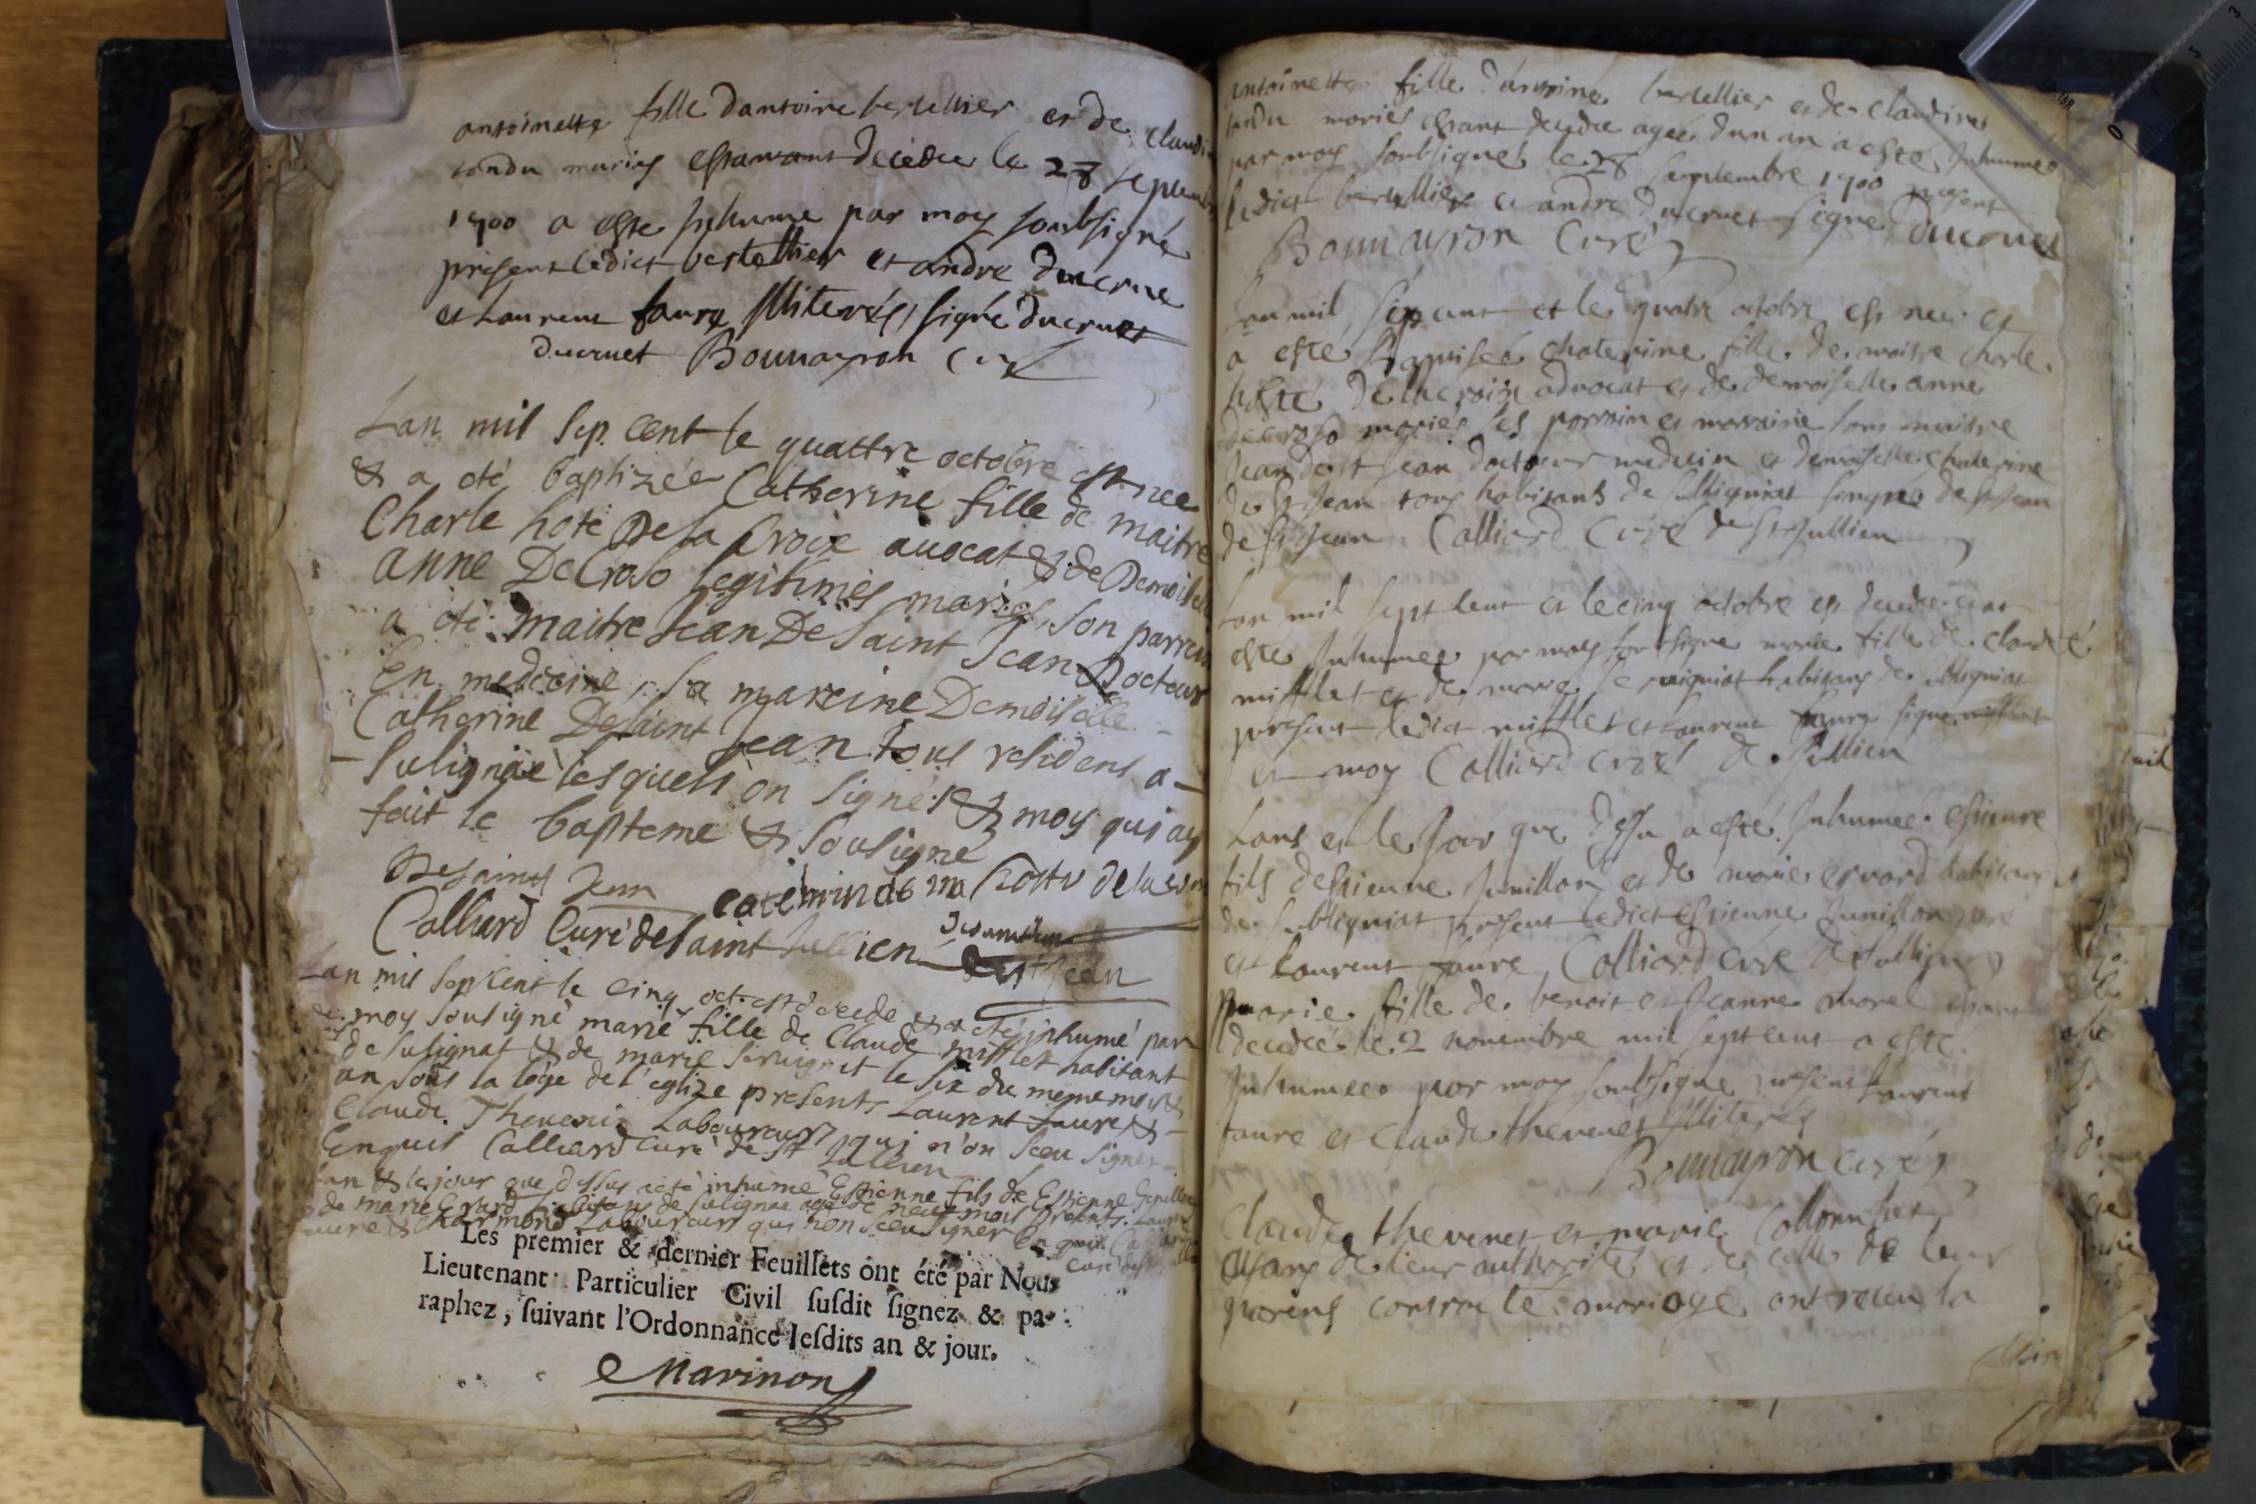 antoinette fille dantoine bertellier et de claudi
tondu maries estant decedee le 28 septemb
1700 a este Inhume par moy soubsigné
present ledict bertellier et andre ducrue
et Laurent faure Illiterés, signé ducruet
ducruet Bonnayron Curé
Lan mil sep cent le quattre octobre est nee
& a eté baptizée Catherine fille de maitre
Charle hote De la Croix auocat & de Demoiselle
anne DeCroso legitimes mariés, son parrein
a été maitre Jean De Saint Jean Docteur
En medecine, sa mareine Demoiselle
Catherine DeSaint Jean tous residens a
Sulignia lesquels on signés & moy qui ay
fait le bapteme & Sousigné
DeSaint Jean
Calliard Curé deSaint Jullien
Lan mil Sep Cent le cinq oct. est decede & a eté inhumé par
moy sousigné marie fille de Claude mifflet habitant
de Sulignat & de marie Seruignit le six du meme mois &
an sous la loge de l'eglize presents Laurent faure &
Claude Thevenin Laboureurs qui n'on sceu signer
Enquis Calliard Curé de St Jullien
Lan & le jour que dessus a eté inhumé Estienne fils de Estienne Genillon
de marie Erard habitans de Sulignia agé de neuf mois presents Laurent
faure & Charmond Laboureurs qui non sceu signer En quis Calliard
curé de St
Les premier & dernier Feuillets ont été par Nous
Lieutenant Particulier Civil susdit signez & pa-
raphez, suivant l'Ordonnance lesdits an & jour.
Marinon
antoinette fille d'antoine bertellier et de claudine
tondu mariés estant decedee agée dun an a esté Inhumee
par moy soubsigné le 28 septembre 1700 present
ledict bertellier et andre ducruet signe ducruet
Bonnayron Curé
Lan mil sept cent et le quatre octobre est nee et
a esté Baptisée chaterine fille de maitre charle
hosté de lacroix advocat et de demoiselle anne
decroso mariés ses parrain et marraine sont maitre
Jean de St Jean docteur medecin et demoiselle chaterine
de St Jean tous habitants de Sulligniat signés de St Jean
de St Jean Calliard Curé de St Jullien
Lan mil sept cent et le cinq octobre est decedee et a
esté Inhumee par moy soubsigne marie fille de claude
mifflet et de marie Seruigniat habitans de Sulligniat
present ledict mifflet et Laurent faure signe mifflet
et moy Calliard curé de Jullien
Lans et le Jour que dessu a esté Inhumee estienne
fils destienne Junillon et de marie erard habitans
de Subligniat present ledict estienne Junillon pere
et Laurent faure Calliard curé de Jullien
marie fille de benoit et Jeanne morel estant
decedée le 2 novembre mil sept cent a esté
Inhumee par moy soubsigne present Laurent
faure et Claude thevenet Illiterés
Bonnayron curé
Claude thevenet et marie
ayans de leur authorité et de celle de leur
parens contracté mariage ont receu la